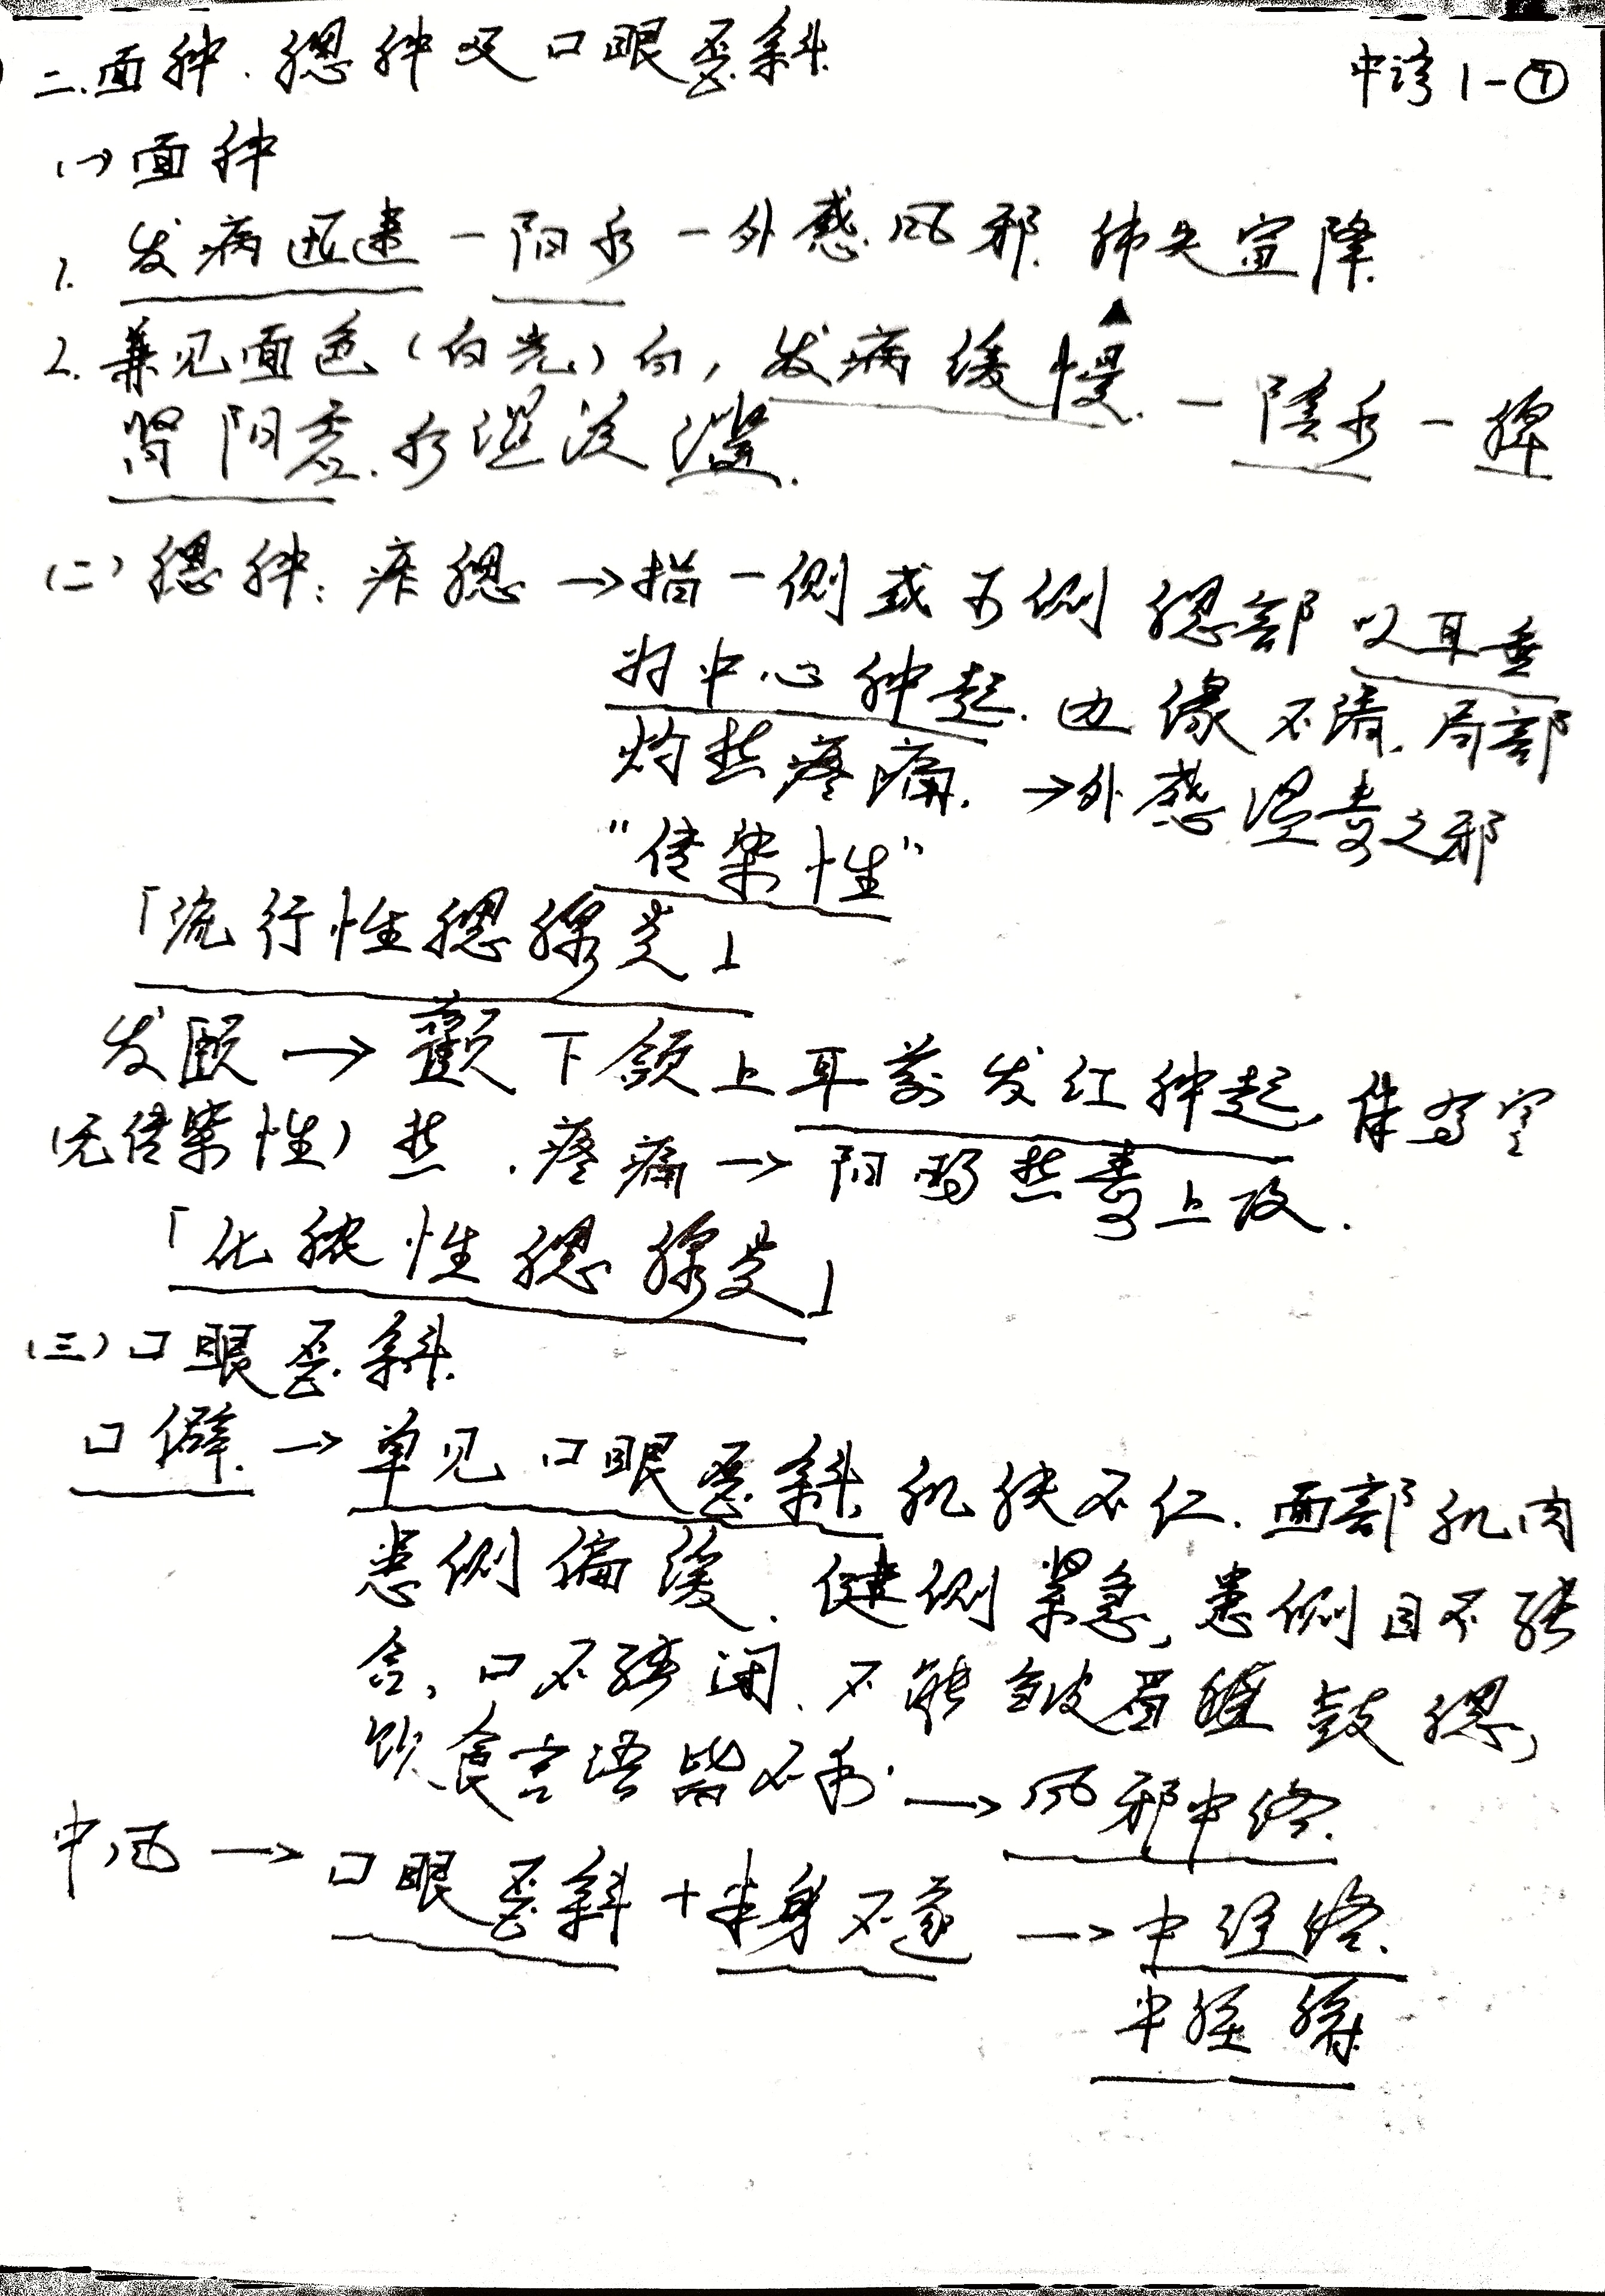 二.面肿.腮肿及口眼㖞斜.
中诊1-⑦
(一)面肿
1. 发病迅速-阳水-外感风邪.肺失宣降.
2. 兼见面色(白光)白,发病缓慢.-阴水-脾
肾阳虚.水湿泛滥.
(二)腮肿:痄腮→指一侧或两侧腮部以耳垂
为中心肿起.边缘不清.局部
灼热疼痛.→外感温毒之邪
"传染性"
「流行性腮腺炎」
发颐→颧下颌上耳前发红肿起,伴寒
(无传染性)热.疼痛→阳明热毒上攻.
「化脓性腮腺炎」
(三)口眼㖞斜.
口僻.→单见口眼㖞斜.肌肤不仁.面部肌肉
患侧偏缓.健侧紧急,患侧目不能
合,口不能闭.不能皱眉鼓腮,
饮食言语皆不利.→风邪中络.
中风→口眼㖞斜+半身不遂→中经络.
中脏腑